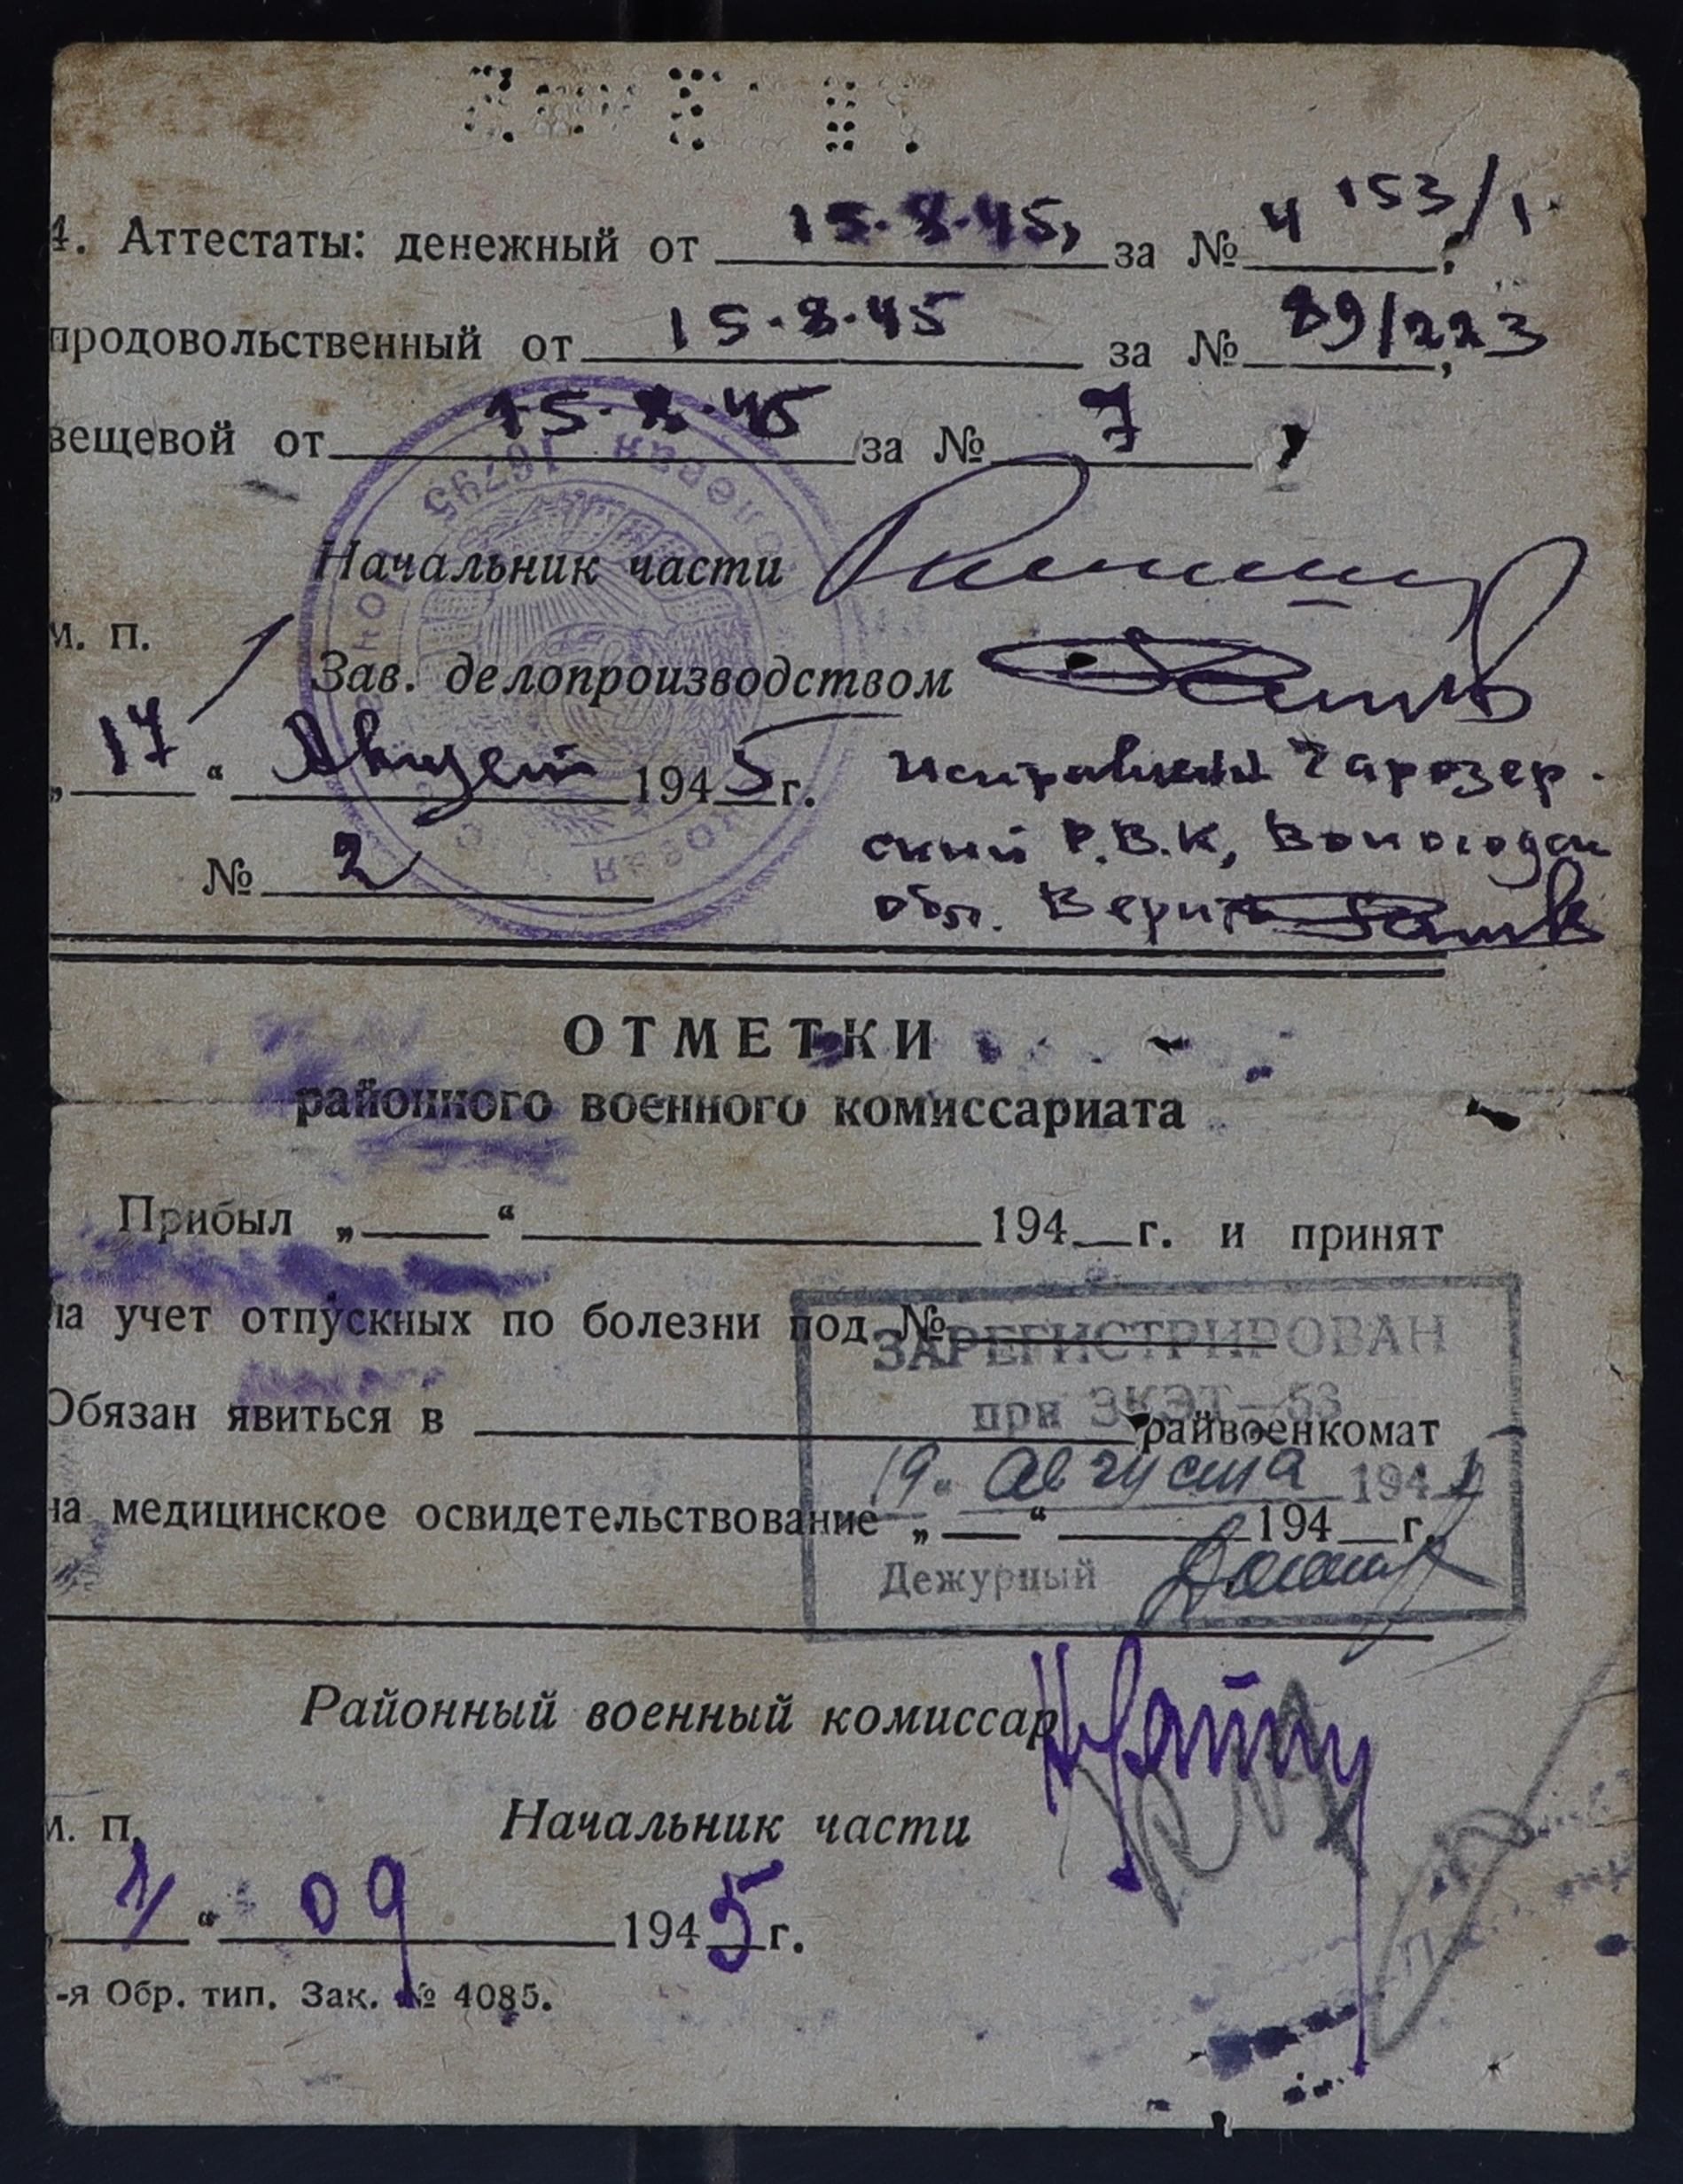 4. Аттестаты: денежный от 15.8.45, за № 4 153/1
продовольственный от 15.8.45 за № 89/223
вещевой от 15.8.45 за № 7
Начальник части
м. п.
Зав. делопроизводством
„17“ Август 1945 г.
исправлен Чарозер.
ский Р.В.К, Вологодск
обл. Верить
№ 2
16795
ОТМЕТКИ
районного военного комиссариата
Прибыл „ “ 194 г. и принят
на учет отпускных по болезни под №
ЗАРЕГИСТРИРОВАН
при ЭКЭТ—53
Обязан явиться в райвоенкомат
19 Августа 194
на медицинское освидетельствование „ “ 194 г.
Дежурный
Районный военный комиссар
Начальник части
м. п.
“ 09 1945 г.
-я Обр. тип. Зак. № 4085.